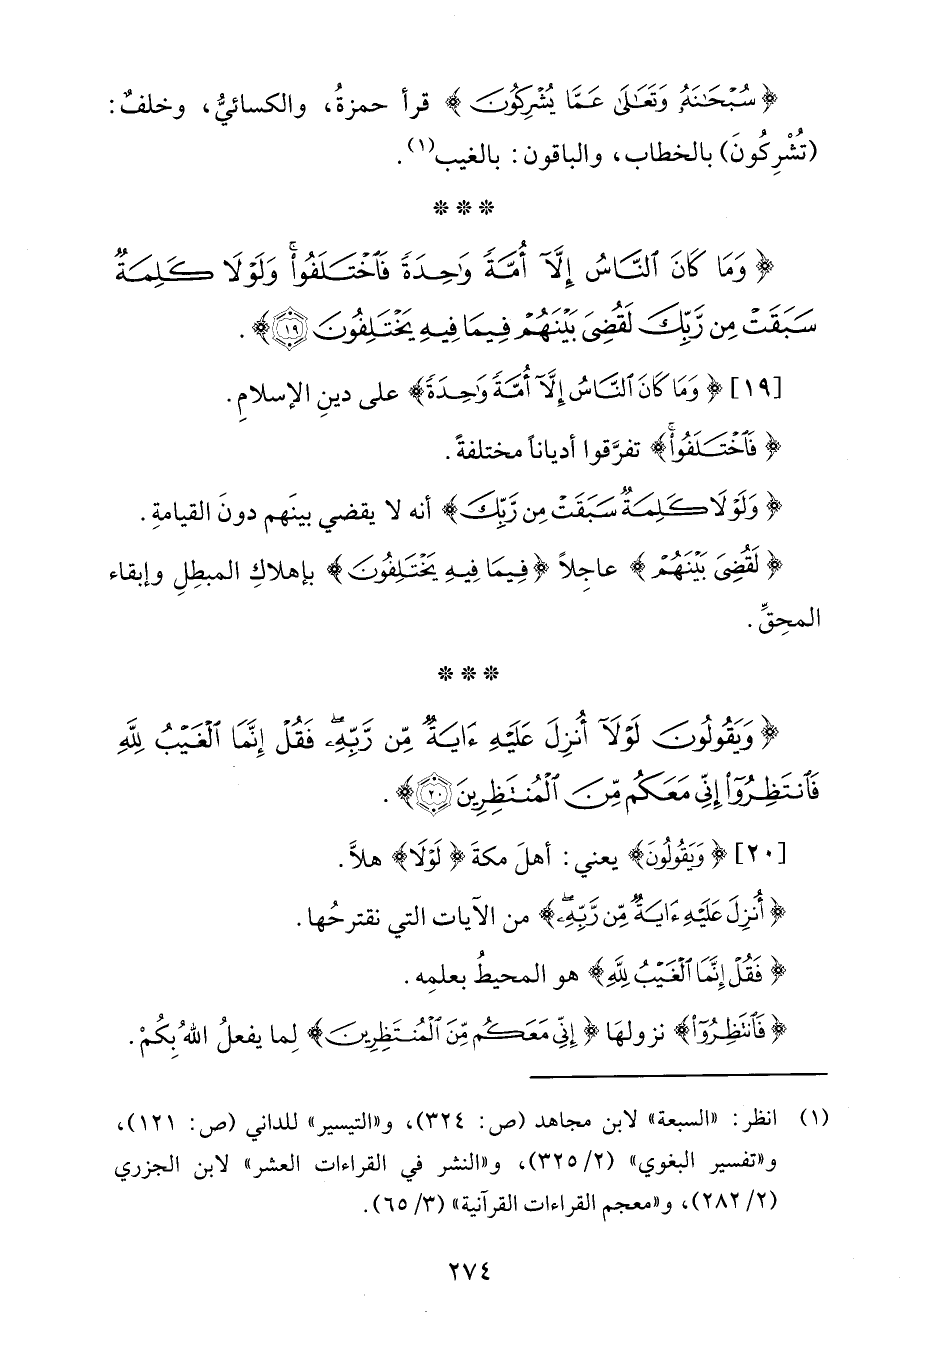 ﴿ سُبْحَٰنَهُۥ وَتَعَٰلَىٰ عَمَّا يُشْرِكُونَ ﴾ قرأ حمزةُ، والكسائيُّ، وخلفٌ:
(تُشْرِكُونَ) بالخطاب، والباقون: بالغيب(١).
* * *
﴿ وَمَا كَانَ ٱلنَّاسُ إِلَّآ أُمَّةً وَٰحِدَةً فَٱخْتَلَفُوا۟ۚ وَلَوْلَا كَلِمَةٌ
سَبَقَتْ مِن رَّبِّكَ لَقُضِىَ بَيْنَهُمْ فِيمَا فِيهِ يَخْتَلِفُونَ ۝١٩﴾.
[١٩] ﴿ وَمَا كَانَ ٱلنَّاسُ إِلَّآ أُمَّةً وَٰحِدَةً﴾ على دينِ الإسلامِ.
﴿ فَٱخْتَلَفُوا۟ۚ﴾ تفرَّقوا أدياناً مختلفةً.
﴿ وَلَوْلَا كَلِمَةٌ سَبَقَتْ مِن رَّبِّكَ﴾ أنه لا يقضي بينَهم دونَ القيامةِ.
﴿ لَقُضِىَ بَيْنَهُمْ ﴾ عاجِلاً ﴿فِيمَا فِيهِ يَخْتَلِفُونَ ﴾ بإهلاكِ المبطِلِ وإبقاء
المحِقِّ.
* * *
﴿ وَيَقُولُونَ لَوْلَآ أُنزِلَ عَلَيْهِ ءَايَةٌ مِّن رَّبِّهِۦۖ فَقُلْ إِنَّمَا ٱلْغَيْبُ لِلَّهِ
فَٱنتَظِرُوٓا۟ إِنِّى مَعَكُم مِّنَ ٱلْمُنتَظِرِينَ ۝٢٠﴾.
[٢٠] ﴿ وَيَقُولُونَ﴾ يعني: أهلَ مكةَ ﴿ لَوْلَا﴾ هلاَّ.
﴿ أُنزِلَ عَلَيْهِ ءَايَةٌ مِّن رَّبِّهِۦۖ﴾ من الآيات التي نقترحُها.
﴿ فَقُلْ إِنَّمَا ٱلْغَيْبُ لِلَّهِ﴾ هو المحيطُ بعلمِه.
﴿ فَٱنتَظِرُوٓا۟﴾ نزولها ﴿ إِنِّى مَعَكُم مِّنَ ٱلْمُنتَظِرِينَ﴾ لِما يفعلُ اللهُ بِكُمْ.
(١) انظر: «السبعة» لابن مجاهد (ص: ٣٢٤)، و«التيسير» للداني (ص: ١٢١)،
و«تفسير البغوي» (٢/ ٣٢٥)، و«النشر في القراءات العشر» لابن الجزري
(٢/ ٢٨٢)، و«معجم القراءات القرآنية» (٣/ ٦٥).
٢٧٤